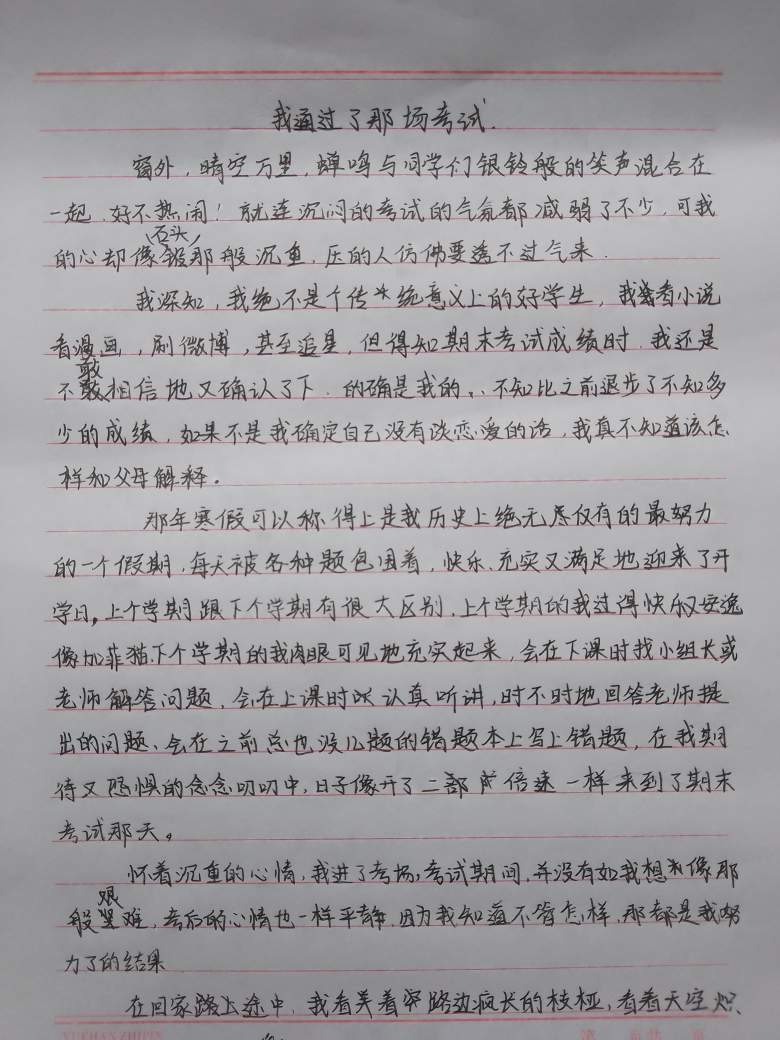 我通过了那场考试.
窗外，晴空万里，蝉鸣与同学们银铃般的笑声混合在
一起，好不热闹！就连沉闷的考试的气氛都减弱了不少，可我
石头
的心却像那般沉重，压的人仿佛要透不过气来.
我深知，我绝不是个传统意义上的好学生，我看小说
看漫画，刷微博，甚至追星，但得知期末考试成绩时，我还是
敢
不相信地又确认了下.的确是我的，不知比之前退步了不知多
少的成绩，如果不是我确定自己没有谈恋爱的话，我真不知道该怎
样和父母解释。
那年寒假可以称得上是我历史上绝无尽仅有的最努力
的一个假期，每天被各种题包围着，快乐、充实又满足地迎来了开
学日。上个学期跟下个学期有很大区别，上个学期的我过得快乐又安逸
像加菲猫.下个学期的我肉眼可见地充实起来，会在下课时找小组长或
老师解答问题，会在上课时认真听讲，时不时地回答老师提
出的问题、会在之前总也没几题的错题本上写上错题，在我期
待又恐惧的念念叨叨中，日子像开了二倍速一样来到了期末
考试那天。
怀着沉重的心情，我进了考场，考试期间，并没有如我想像那
艰
般难，考后的心情也一样平静.因为我知道不管怎样，那都是我努
力了的结果
在回家路上途中，我看着路边疯长的枝桠，看着天空炽
YUKHAN ZHIPIN 第 页 共 页